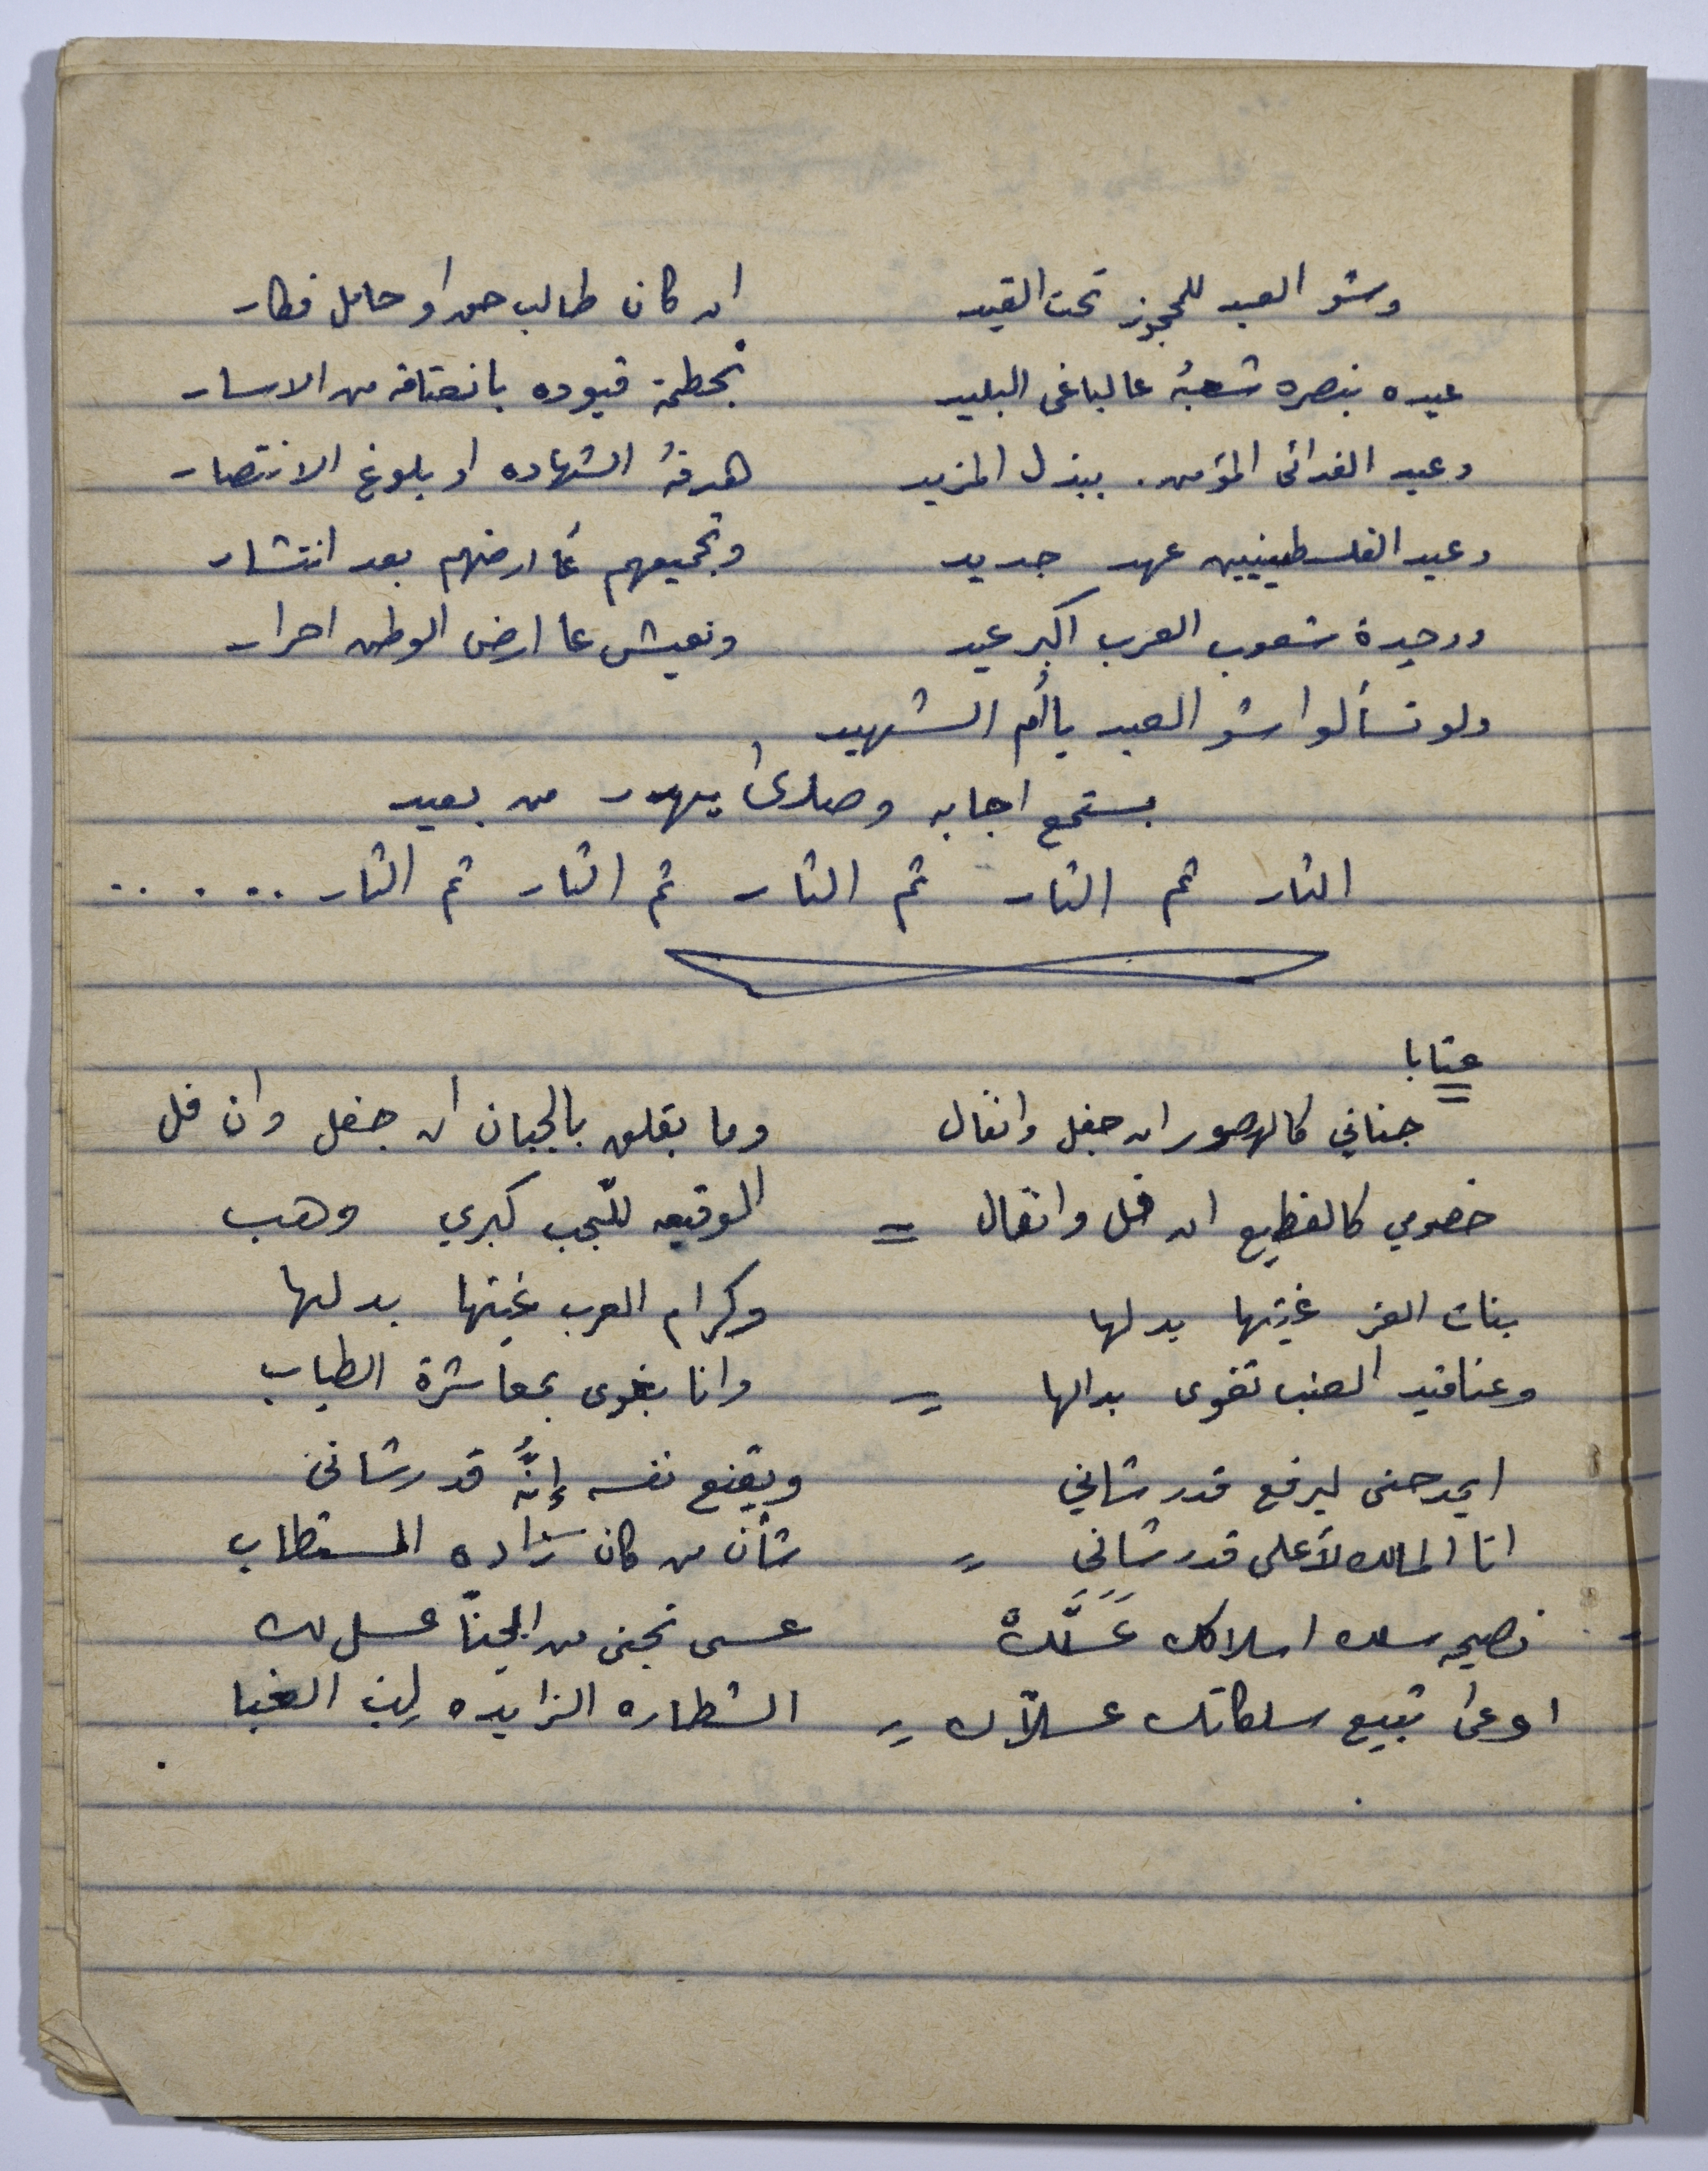 وشو العيد للمحجوز تحت القيد ان كان طالب حق او حامل فكار
عيده بنصره شعبُه عالباغي البليد بحطمة قيوده بانعتاقه من الاسار
وعيد الفدائي المؤمن. ببذل المزيد هدفهُ الشهاده او بلوغ الانتصار
وعيد الفلسطينيين عهد جديد وتجميعهم عَا ارضهم بعد انتشار
ووحدة شعوب العرب اكبر عيد ونعيش عا ارض الوطن احرار
ولو تسألوا شو العيد يا أُم الشهيد
بستمع اجابه وصدىً يهدر من بعيد
الثار ثم الثار ثم الثار ثم الثار ثم الثار .. . . ..
عتابا
جناني كالهصور ان جفل وانفال وما بقلق بالجبان ان جفل وان فل
خصومي كالقطيع ان فل وانفال = الوقيعه للنجب كبري وهب
بنات العز غيتها بدلها وكرام العرب غيتها بدلها
وعناقيد العنب تغوى بدالها = وانا بغوى بمعاشرة الطياب
ايمدحني ليرفع قدر شاني ويقنع نفسه إنَّهُ قدر شاني
انا المالك لأعلى قدر شاني = شأن من كان زاده المستطاب
نصيحه سلك اسلاكك عَسَلَّكْ عسى تجني من الجنا عسل لك
اوعى تبيع سلكاتك عسلاّك = الشطاره الزايده لِبن الغبا